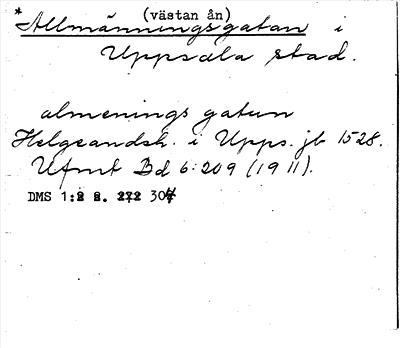 (västan ån)
*Allmänningsgatan i
Uppsala stad.
almenings gatun
Helgeandsh. i Upps. jb 1528.
Ufmt Bd 6:209 (1911).
DMS 1:2 s. 304